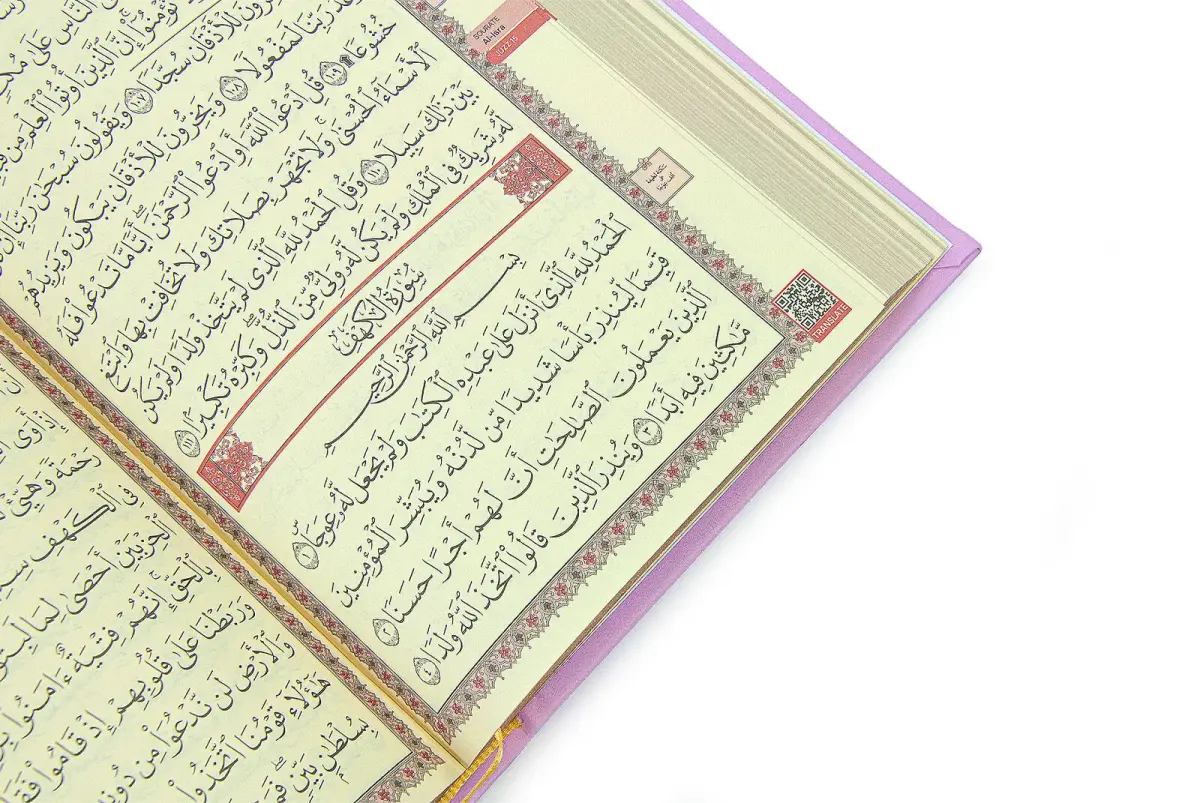 SOURATE
Al-Isra
JUZZ 15
ٱلنَّاسِ عَلَىٰ
تُؤْمِنُوٓا۟ ۚ إِنَّ ٱلَّذِينَ أُوتُوا۟ ٱلْعِلْمَ مِن
يَخِرُّونَ لِلْأَذْقَانِ سُجَّدًا ١٠٧ وَيَقُولُونَ سُبْحَٰنَ رَبِّنَآ إِن
وَعْدُ رَبِّنَا لَمَفْعُولًا ١٠٨ وَيَخِرُّونَ لِلْأَذْقَانِ يَبْكُونَ وَيَزِيدُهُمْ
خُشُوعًا ۩ ١٠٩ قُلِ ٱدْعُوا۟ ٱللَّهَ أَوِ ٱدْعُوا۟ ٱلرَّحْمَٰنَ ۖ أَيًّا مَّا تَدْعُوا۟ فَلَهُ
ٱلْأَسْمَآءُ ٱلْحُسْنَىٰ ۚ وَلَا تَجْهَرْ بِصَلَاتِكَ وَلَا تُخَافِتْ بِهَا وَٱبْتَغِ
بَيْنَ ذَٰلِكَ سَبِيلًا ١١٠ وَقُلِ ٱلْحَمْدُ لِلَّهِ ٱلَّذِى لَمْ يَتَّخِذْ وَلَدًا وَلَمْ يَكُن
لَّهُۥ شَرِيكٌ فِى ٱلْمُلْكِ وَلَمْ يَكُن لَّهُۥ وَلِىٌّ مِّنَ ٱلذُّلِّ ۖ وَكَبِّرْهُ تَكْبِيرًۢا ١١١
سُورَةُ الكَهْفِ
بِسْمِ ٱللَّهِ ٱلرَّحْمَٰنِ ٱلرَّحِيمِ
ٱلْحَمْدُ لِلَّهِ ٱلَّذِىٓ أَنزَلَ عَلَىٰ عَبْدِهِ ٱلْكِتَٰبَ وَلَمْ يَجْعَل لَّهُۥ عِوَجَاۜ ١
قَيِّمًا لِّيُنذِرَ بَأْسًا شَدِيدًا مِّن لَّدُنْهُ وَيُبَشِّرَ ٱلْمُؤْمِنِينَ
ٱلَّذِينَ يَعْمَلُونَ ٱلصَّٰلِحَٰتِ أَنَّ لَهُمْ أَجْرًا حَسَنًا ٢
مَّٰكِثِينَ فِيهِ أَبَدًا ٣ وَيُنذِرَ ٱلَّذِينَ قَالُوا۟ ٱتَّخَذَ ٱللَّهُ وَلَدًا ٤
TRANSLATE
إِذْ أَوَى
رَحْمَةً وَهَيِّئْ
فِى ٱلْكَهْفِ
ٱلْحِزْبَيْنِ أَحْصَىٰ لِمَا لَبِثُوٓا۟
بِٱلْحَقِّ ۚ إِنَّهُمْ فِتْيَةٌ ءَامَنُوا۟
وَرَبَطْنَا عَلَىٰ قُلُوبِهِمْ إِذْ قَامُوا۟
وَٱلْأَرْضِ لَن نَّدْعُوَا۟ مِن
هَٰٓؤُلَآءِ قَوْمُنَا ٱتَّخَذُوا۟
بِسُلْطَٰنٍۭ بَيِّنٍ ۖ